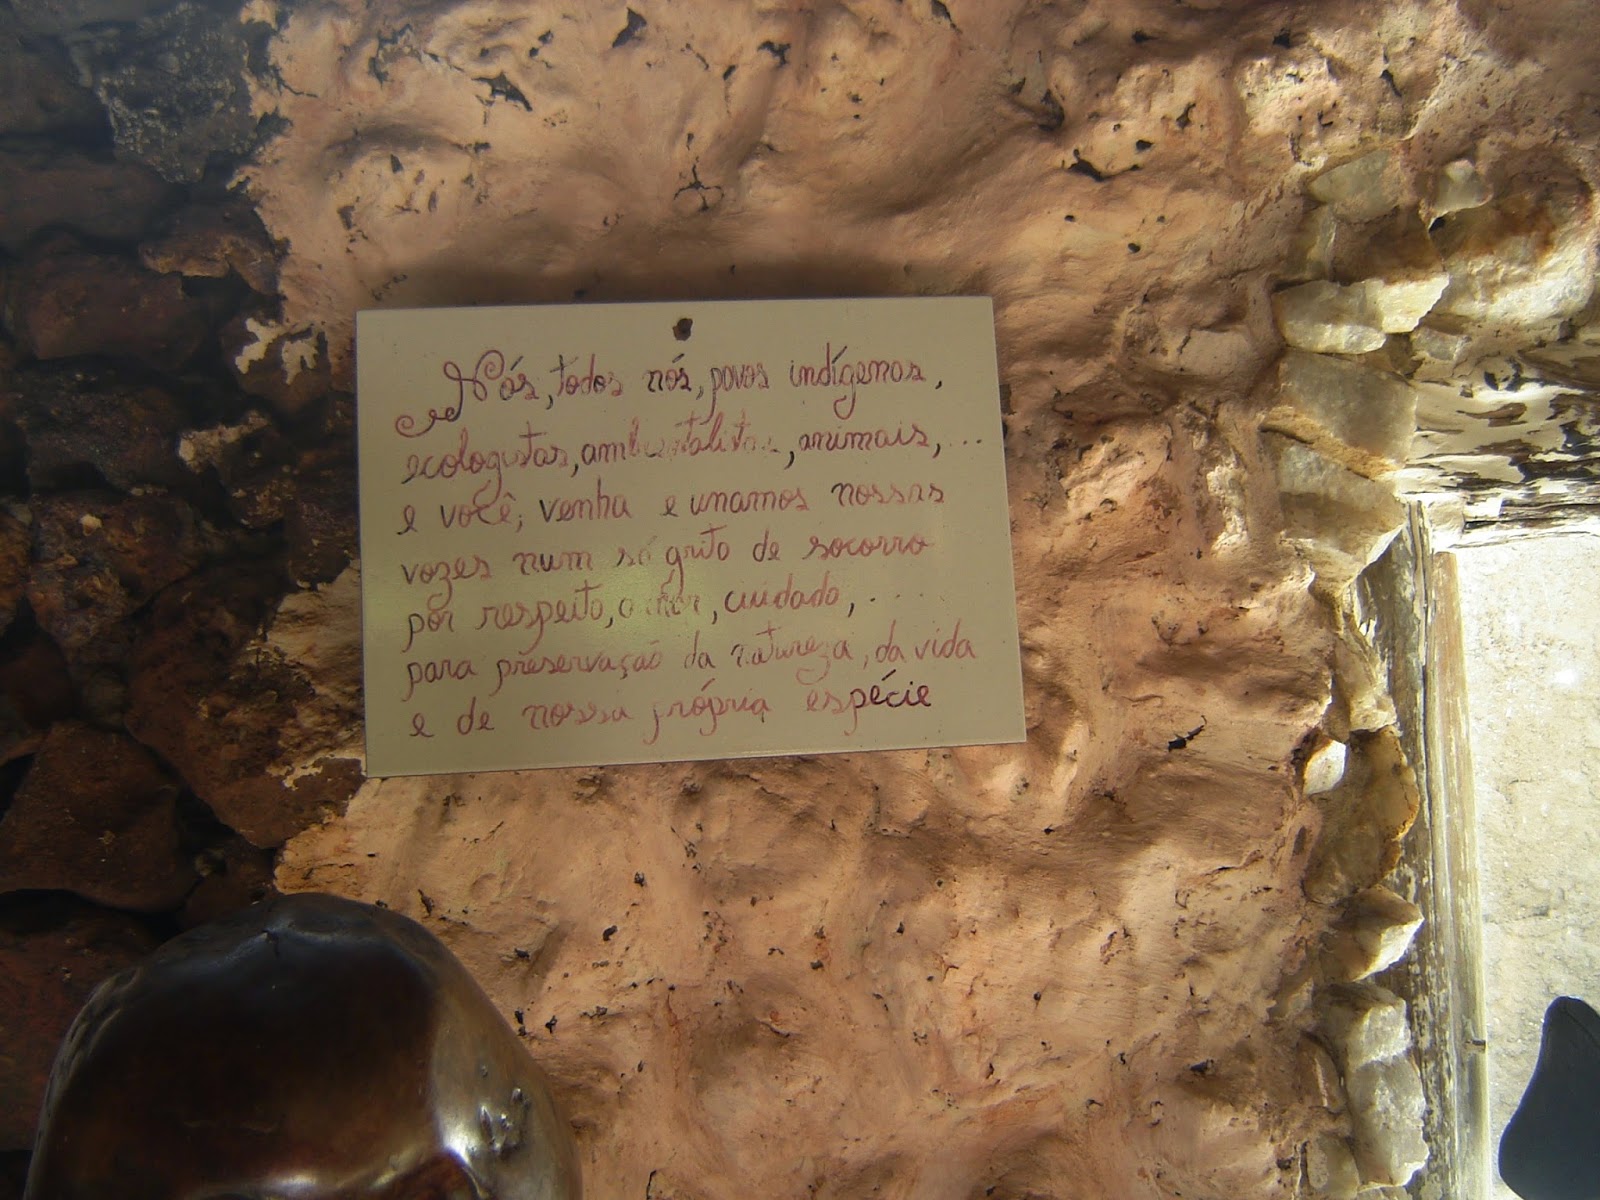 Nós, todos nós, povos indígenas,
ecologistas, ambientalistas, animais, ...
e você, venha e unamos nossas
vozes num só grito de socorro
por respeito, amor, cuidado, ....
para preservação da natureza, da vida
e de nossa própria espécie